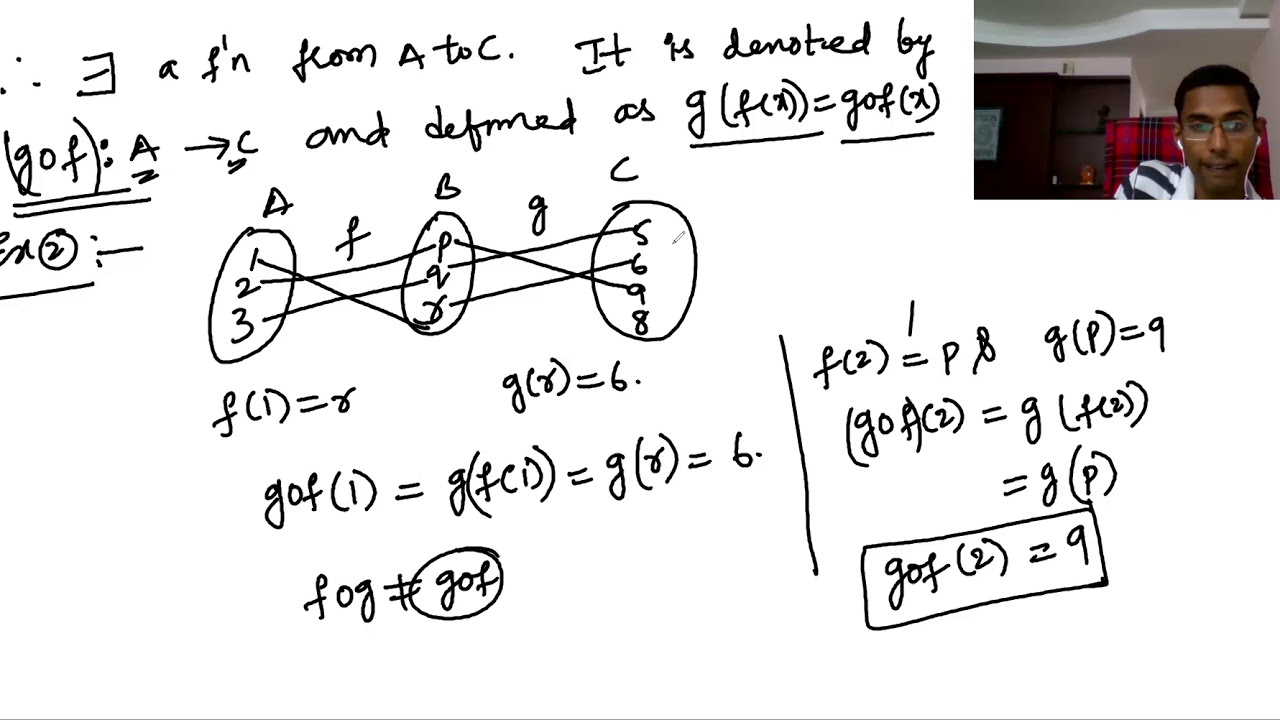 ∴ ∃ a f'n from A to C. It is denoted by
(gof): A → C and defined as g(f(x)) = gof(x)
Ex ② :—
A f B g C
1 p 5
2 q 6
3 r 9
8
f(1) = r g(r) = 6.
gof(1) = g(f(1)) = g(r) = 6.
fog ≠ gof
f(2) = p & g(p) = 9
(gof)(2) = g(f(2))
= g(p)
gof(2) = 9